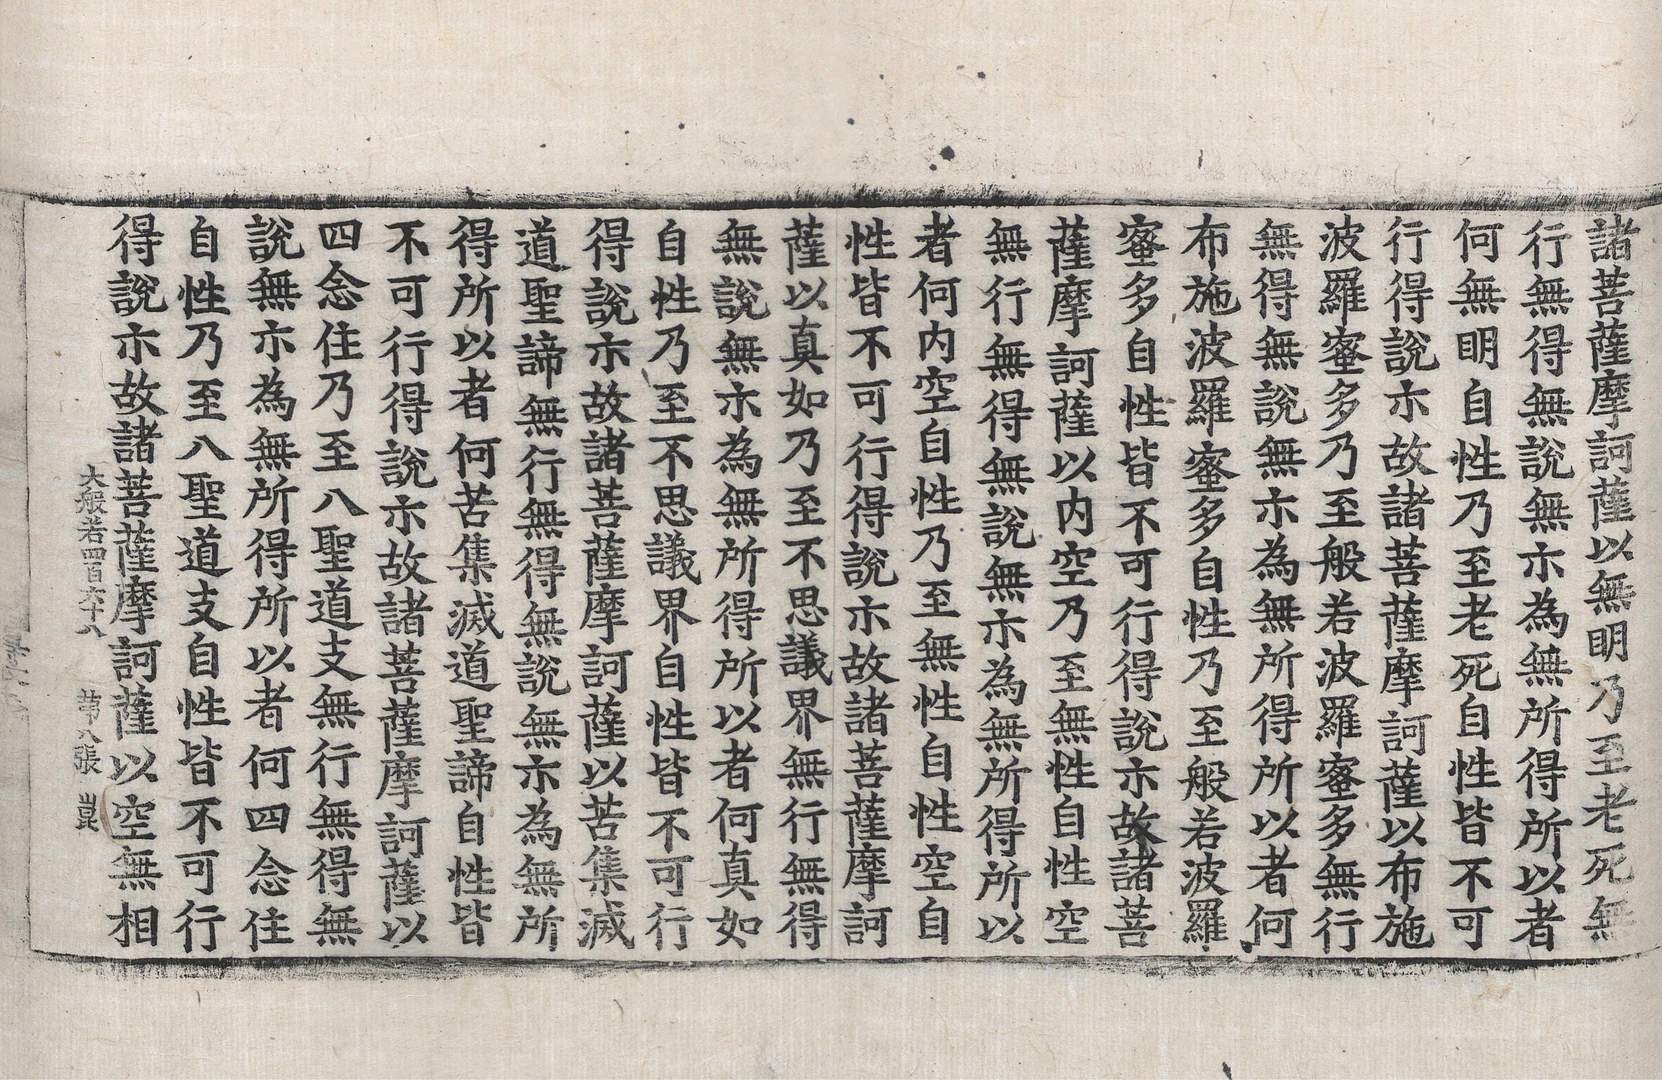 諸菩薩摩訶薩以無明乃至老死無
行無得無說無示為無所得所以者
何無明自性乃至老死自性皆不可
行得說示故諸菩薩摩訶薩以布施
波羅蜜多乃至般若波羅蜜多無行
無得無說無示為無所得所以者何
布施波羅蜜多自性乃至般若波羅
蜜多自性皆不可行得說示故諸菩
薩摩訶薩以內空乃至無性自性空
無行無得無說無示為無所得所以
者何內空自性乃至無性自性空自
性皆不可行得說示故諸菩薩摩訶
薩以真如乃至不思議界無行無得
無說無示為無所得所以者何真如
自性乃至不思議界自性皆不可行
得說示故諸菩薩摩訶薩以苦集滅
道聖諦無行無得無說無示為無所
得所以者何苦集滅道聖諦自性皆
不可行得說示故諸菩薩摩訶薩以
四念住乃至八聖道支無行無得無
說無示為無所得所以者何四念住
自性乃至八聖道支自性皆不可行
得說示故諸菩薩摩訶薩以空無相
大般若四百六十八 第八張 崑